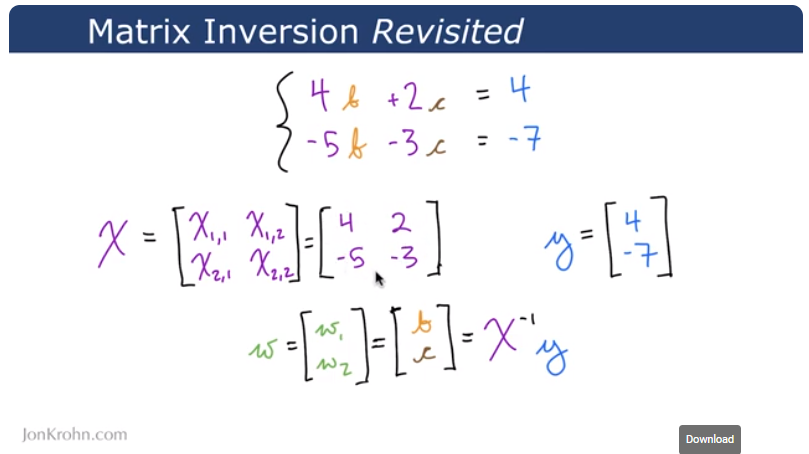 Matrix Inversion Revisited
4b +2c = 4
-5b -3c = -7
X = [X1,1 X1,2 X2,1 X2,2] = [4 2 -5 -3] y = [4 -7]
w = [w1 w2] = [b c] = X⁻¹y
JonKrohn.com
Download